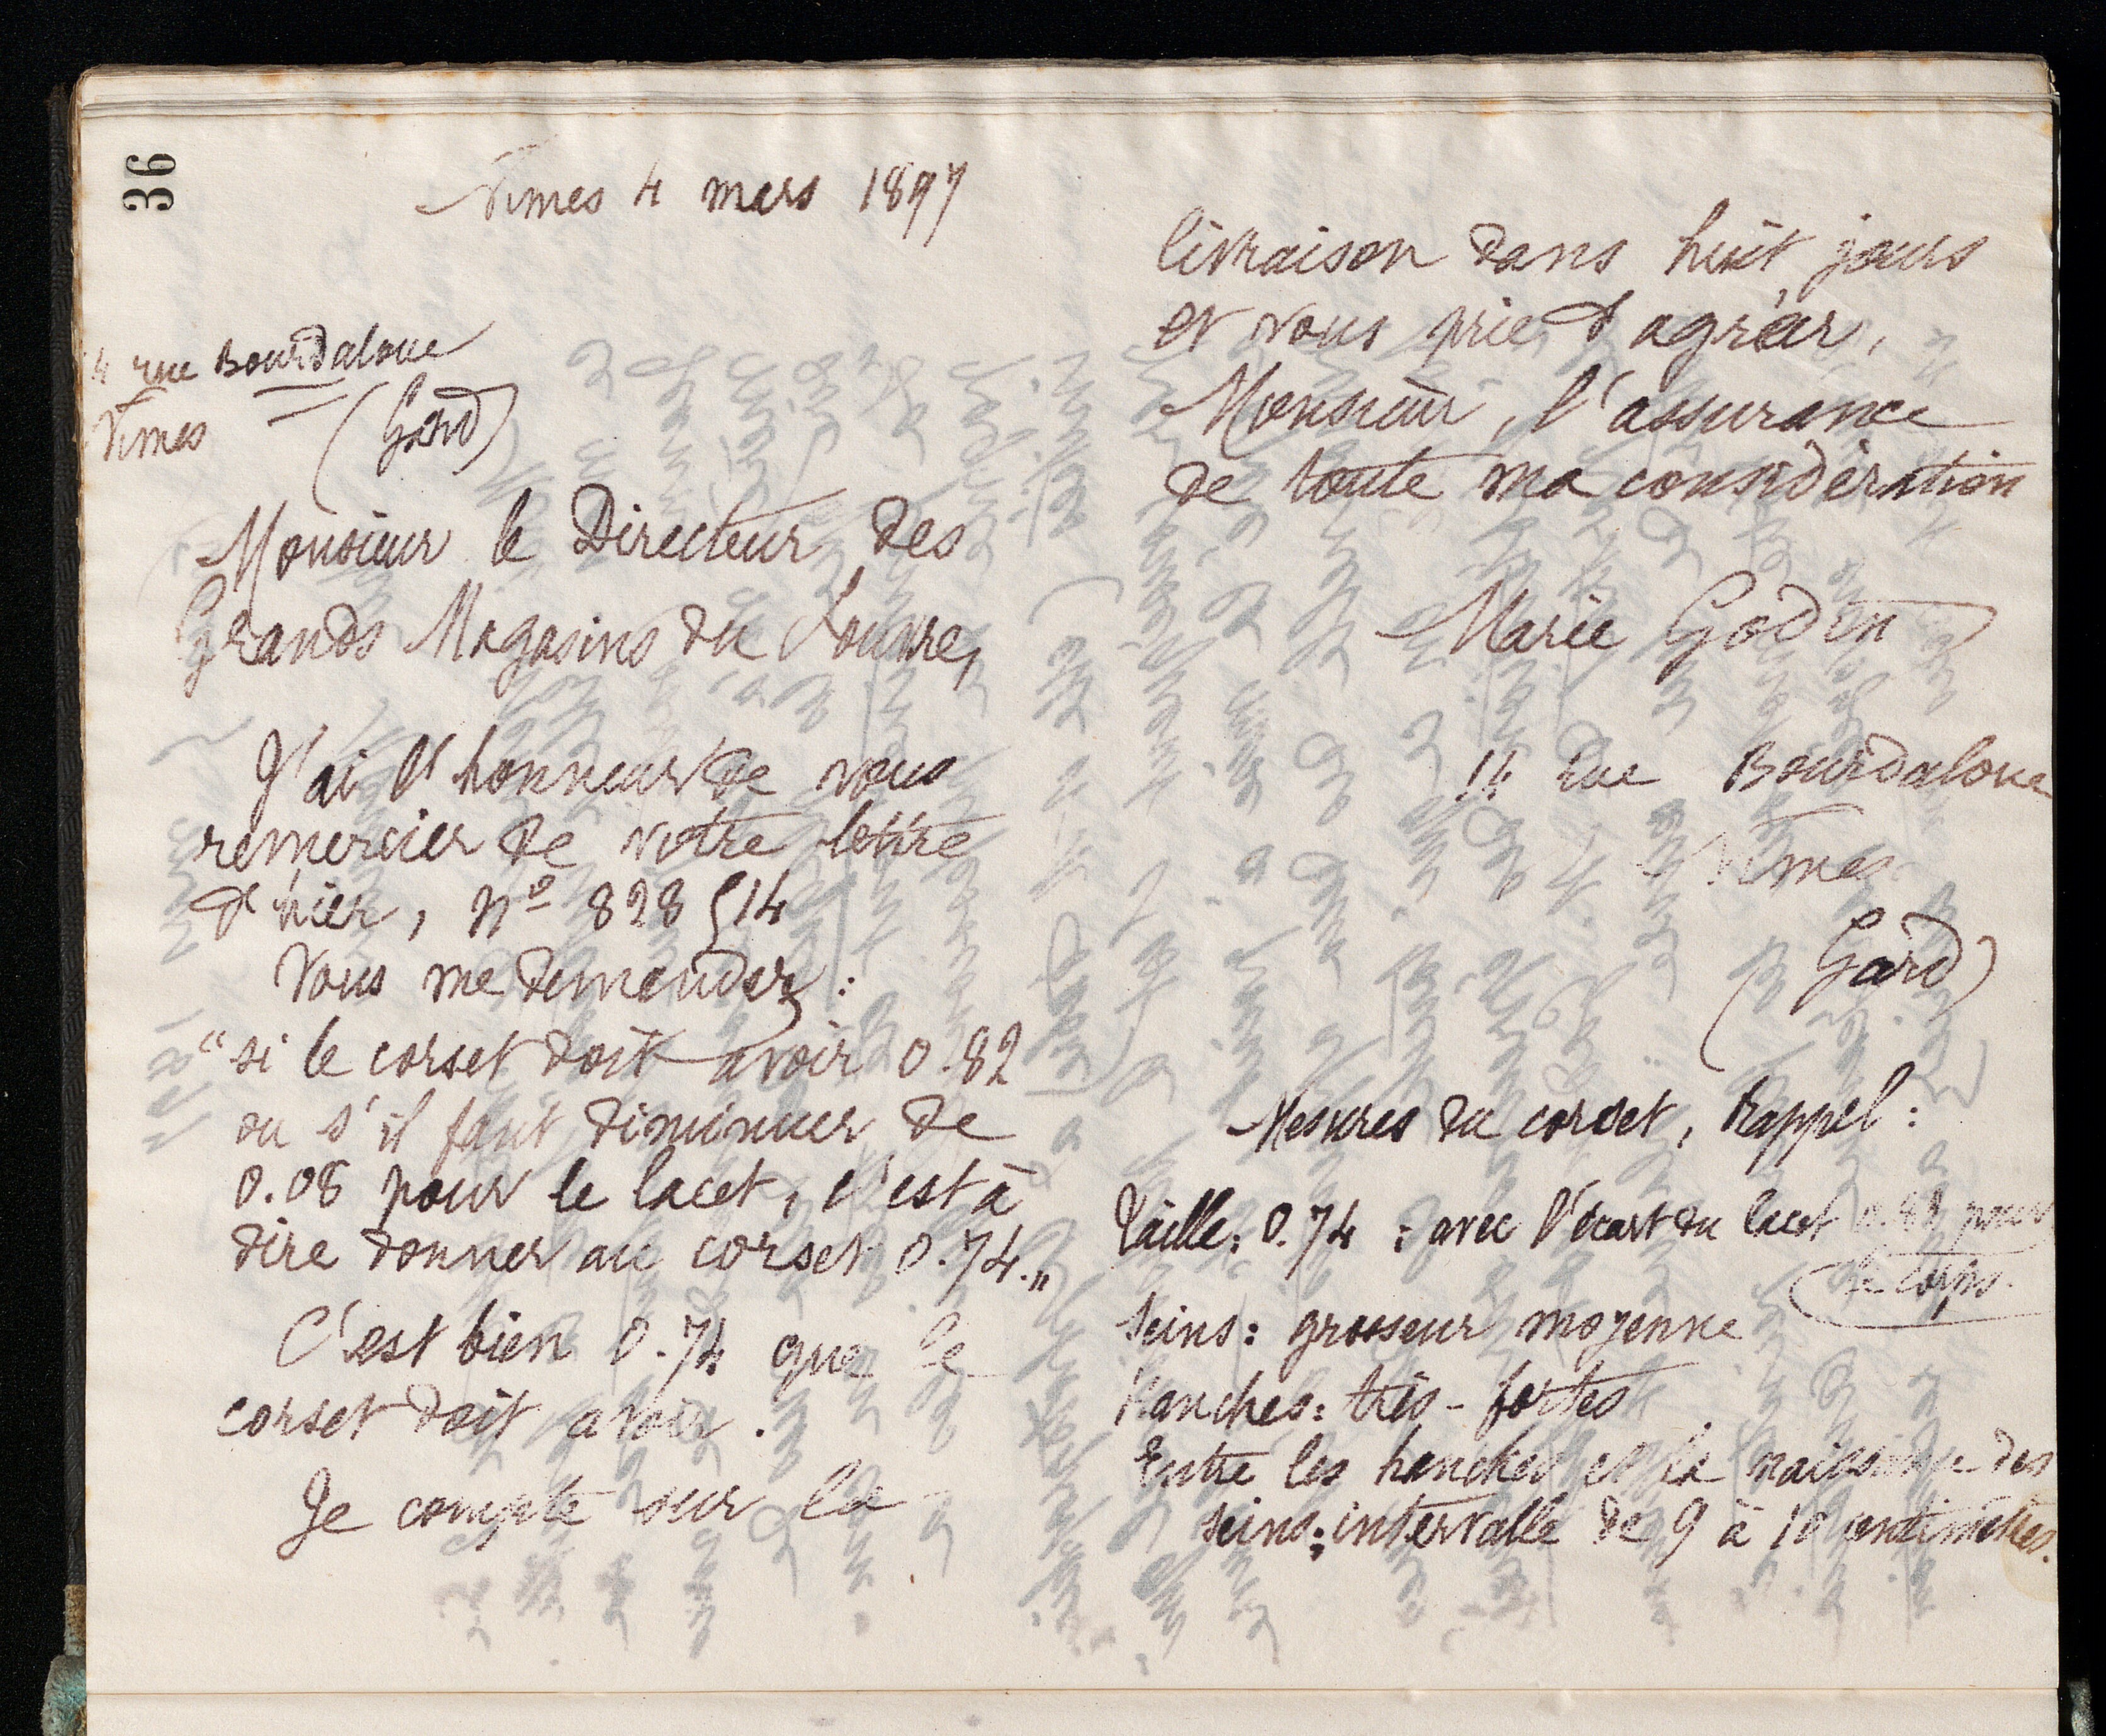 36
Nimes 4 mars 1897
4 rue Bourdaloue
Nimes (Gard)
Monsieur le Directeur des
Grands Magasins du Louvre,
J'ai l'honneur de vous
remercier de votre lettre
d'hier, Nº 828514
Vous me demandez :
"si le corset doit avoir 0.82
ou s'il faut diminuer de
0.08 pour le lacet, c'est à
dire donner au corset 0.74."
C'est bien 0.74 que le
corset doit avoir.
Je compte sur la
livraison dans huit jours
et vous prie d'agréer,
Monsieur, l'assurance
de toute ma considération
Marie Godin
14 Rue Bourdaloue
Nimes
(Gard)
Mesures du corset, Rappel :
Taille : 0.74 : avec l'écart du lacet 0.82 pour
le corps.
Seins : grosseur moyenne
Hanches : très-fortes
Entre les hanches et la naissance des
seins : intervalle de 9 à 10 centimètres.